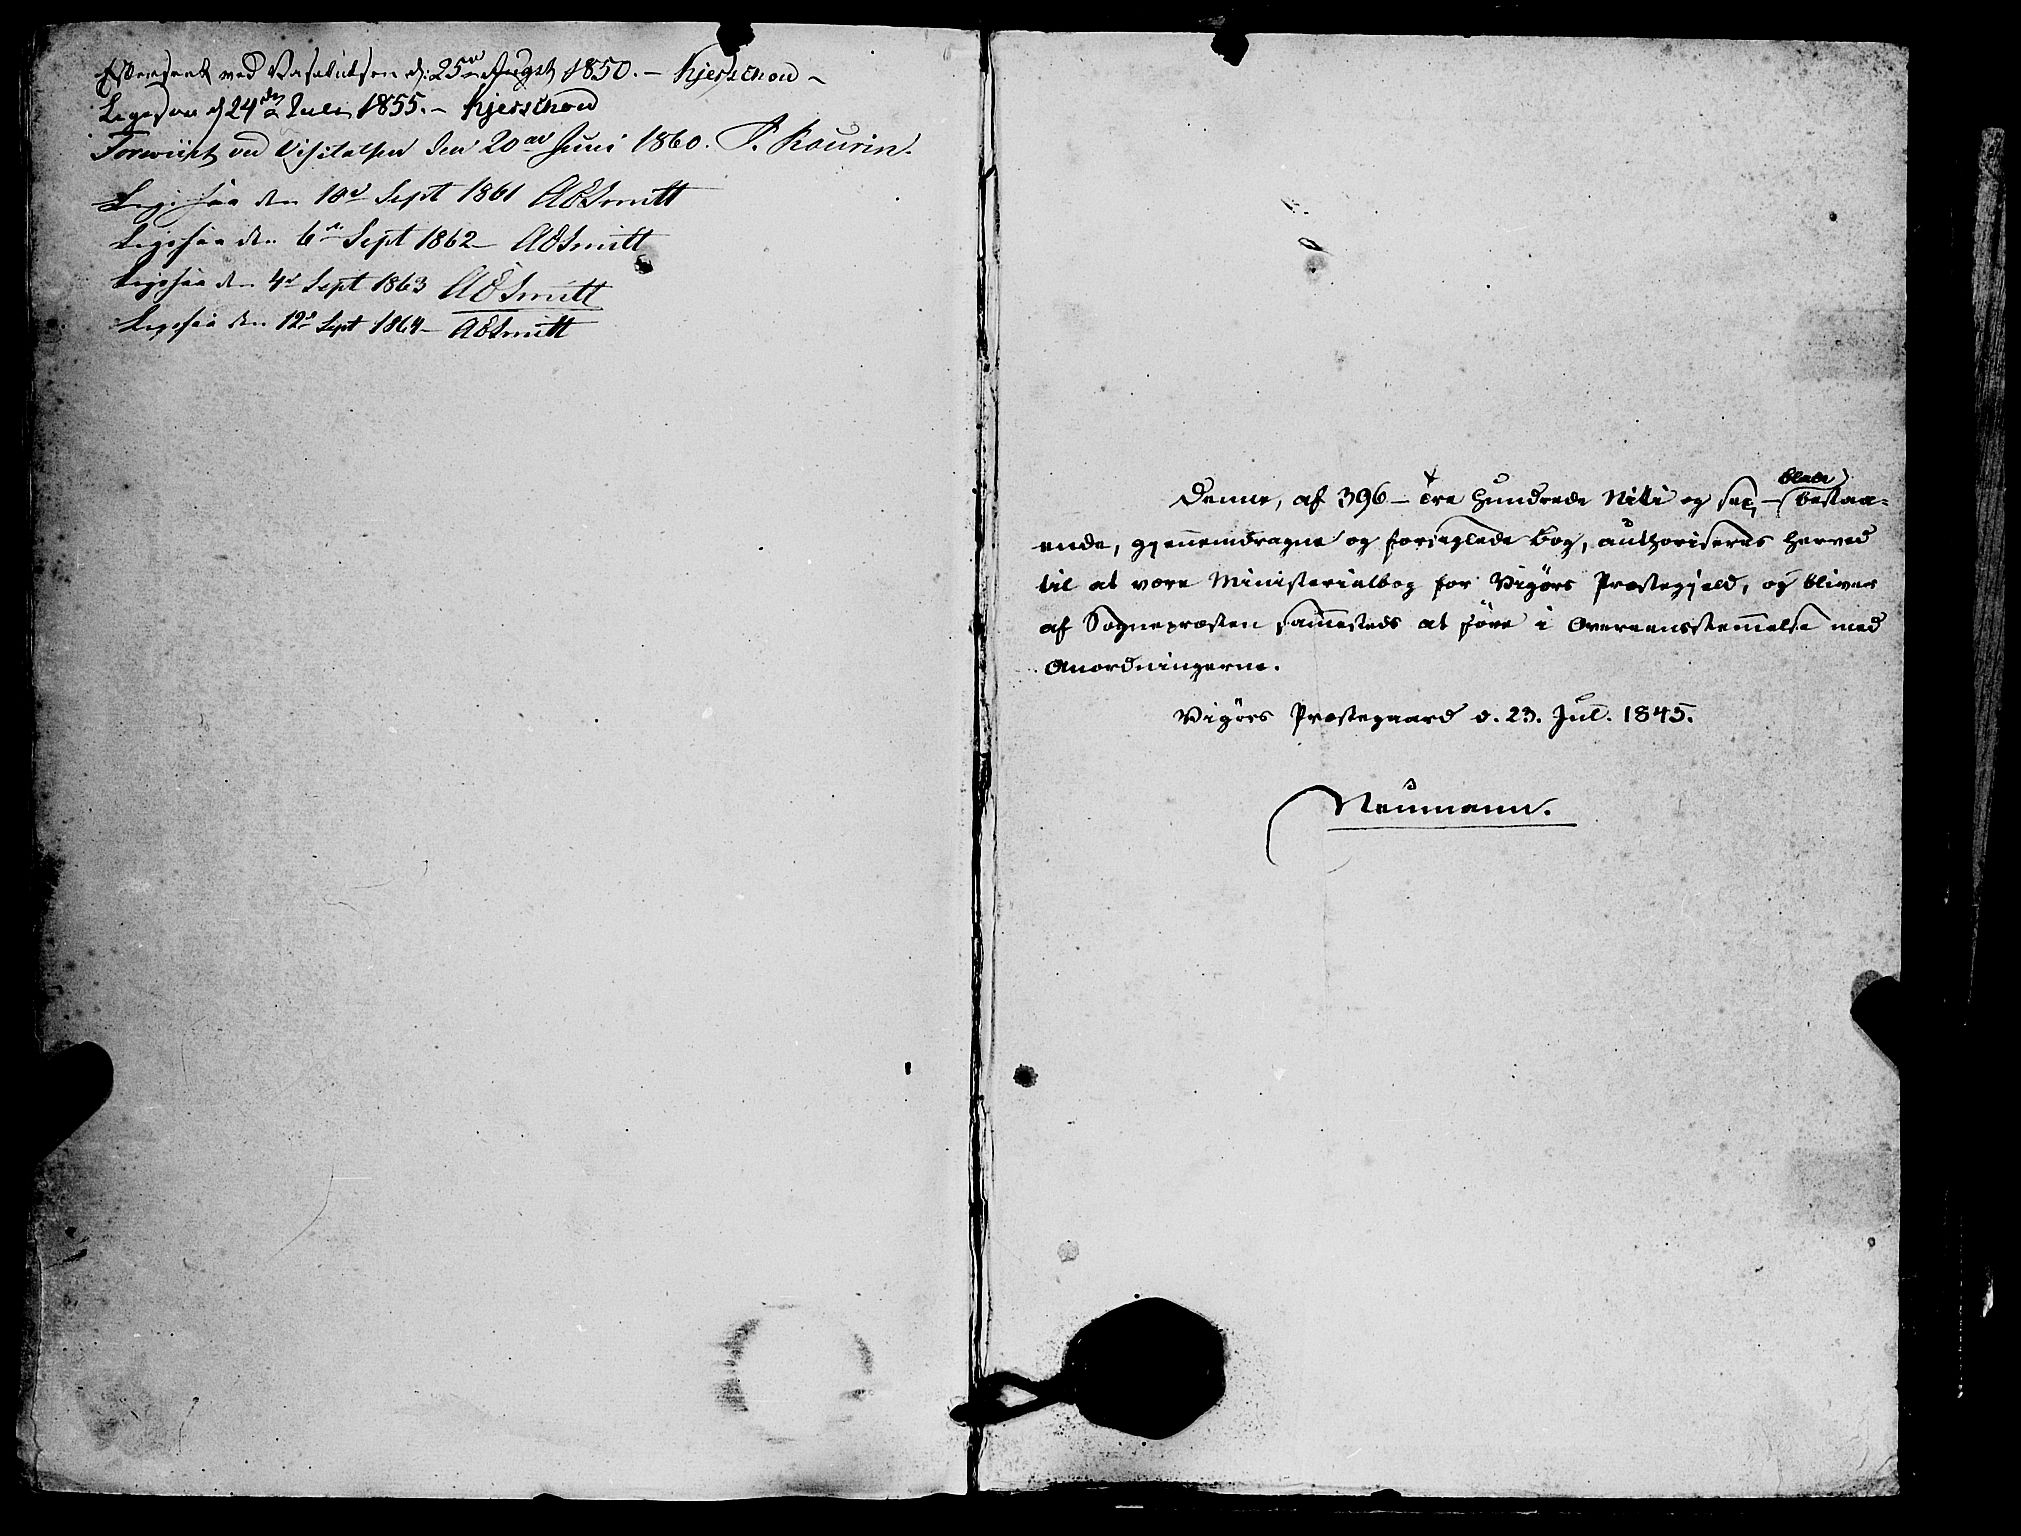 Efterseet ved Visitatsen d. 25de August 1850. – Kjerschow –
Ligesaa d 24de Juli 1855. – Kjerschow
Foreviist ved Visitatsen den 20de Juni 1860. P. Kourin.
Ligesaa den 10de Sept 1861 AESmitt
Ligesaa den 6te Sept 1862 – AESmitt
Ligesaa den 4de Sept 1863 AESmitt
Ligesaa den 12te Sept 1864 – AESmitt
Denne, af 396 – Tre Hundrede Niti og sex, – Blade bestaa-
ende, gjennemdragne og forseglede Bog, authoriseres herved
til at være Ministerialbog for Vigörs Præstegjeld, og bliver
af Sognepræsten sammesteds at före i Overeensstemmelse med
Anordningerne.
Vigörs Præstegaard d. 23. Jul. 1845.
Neumann.